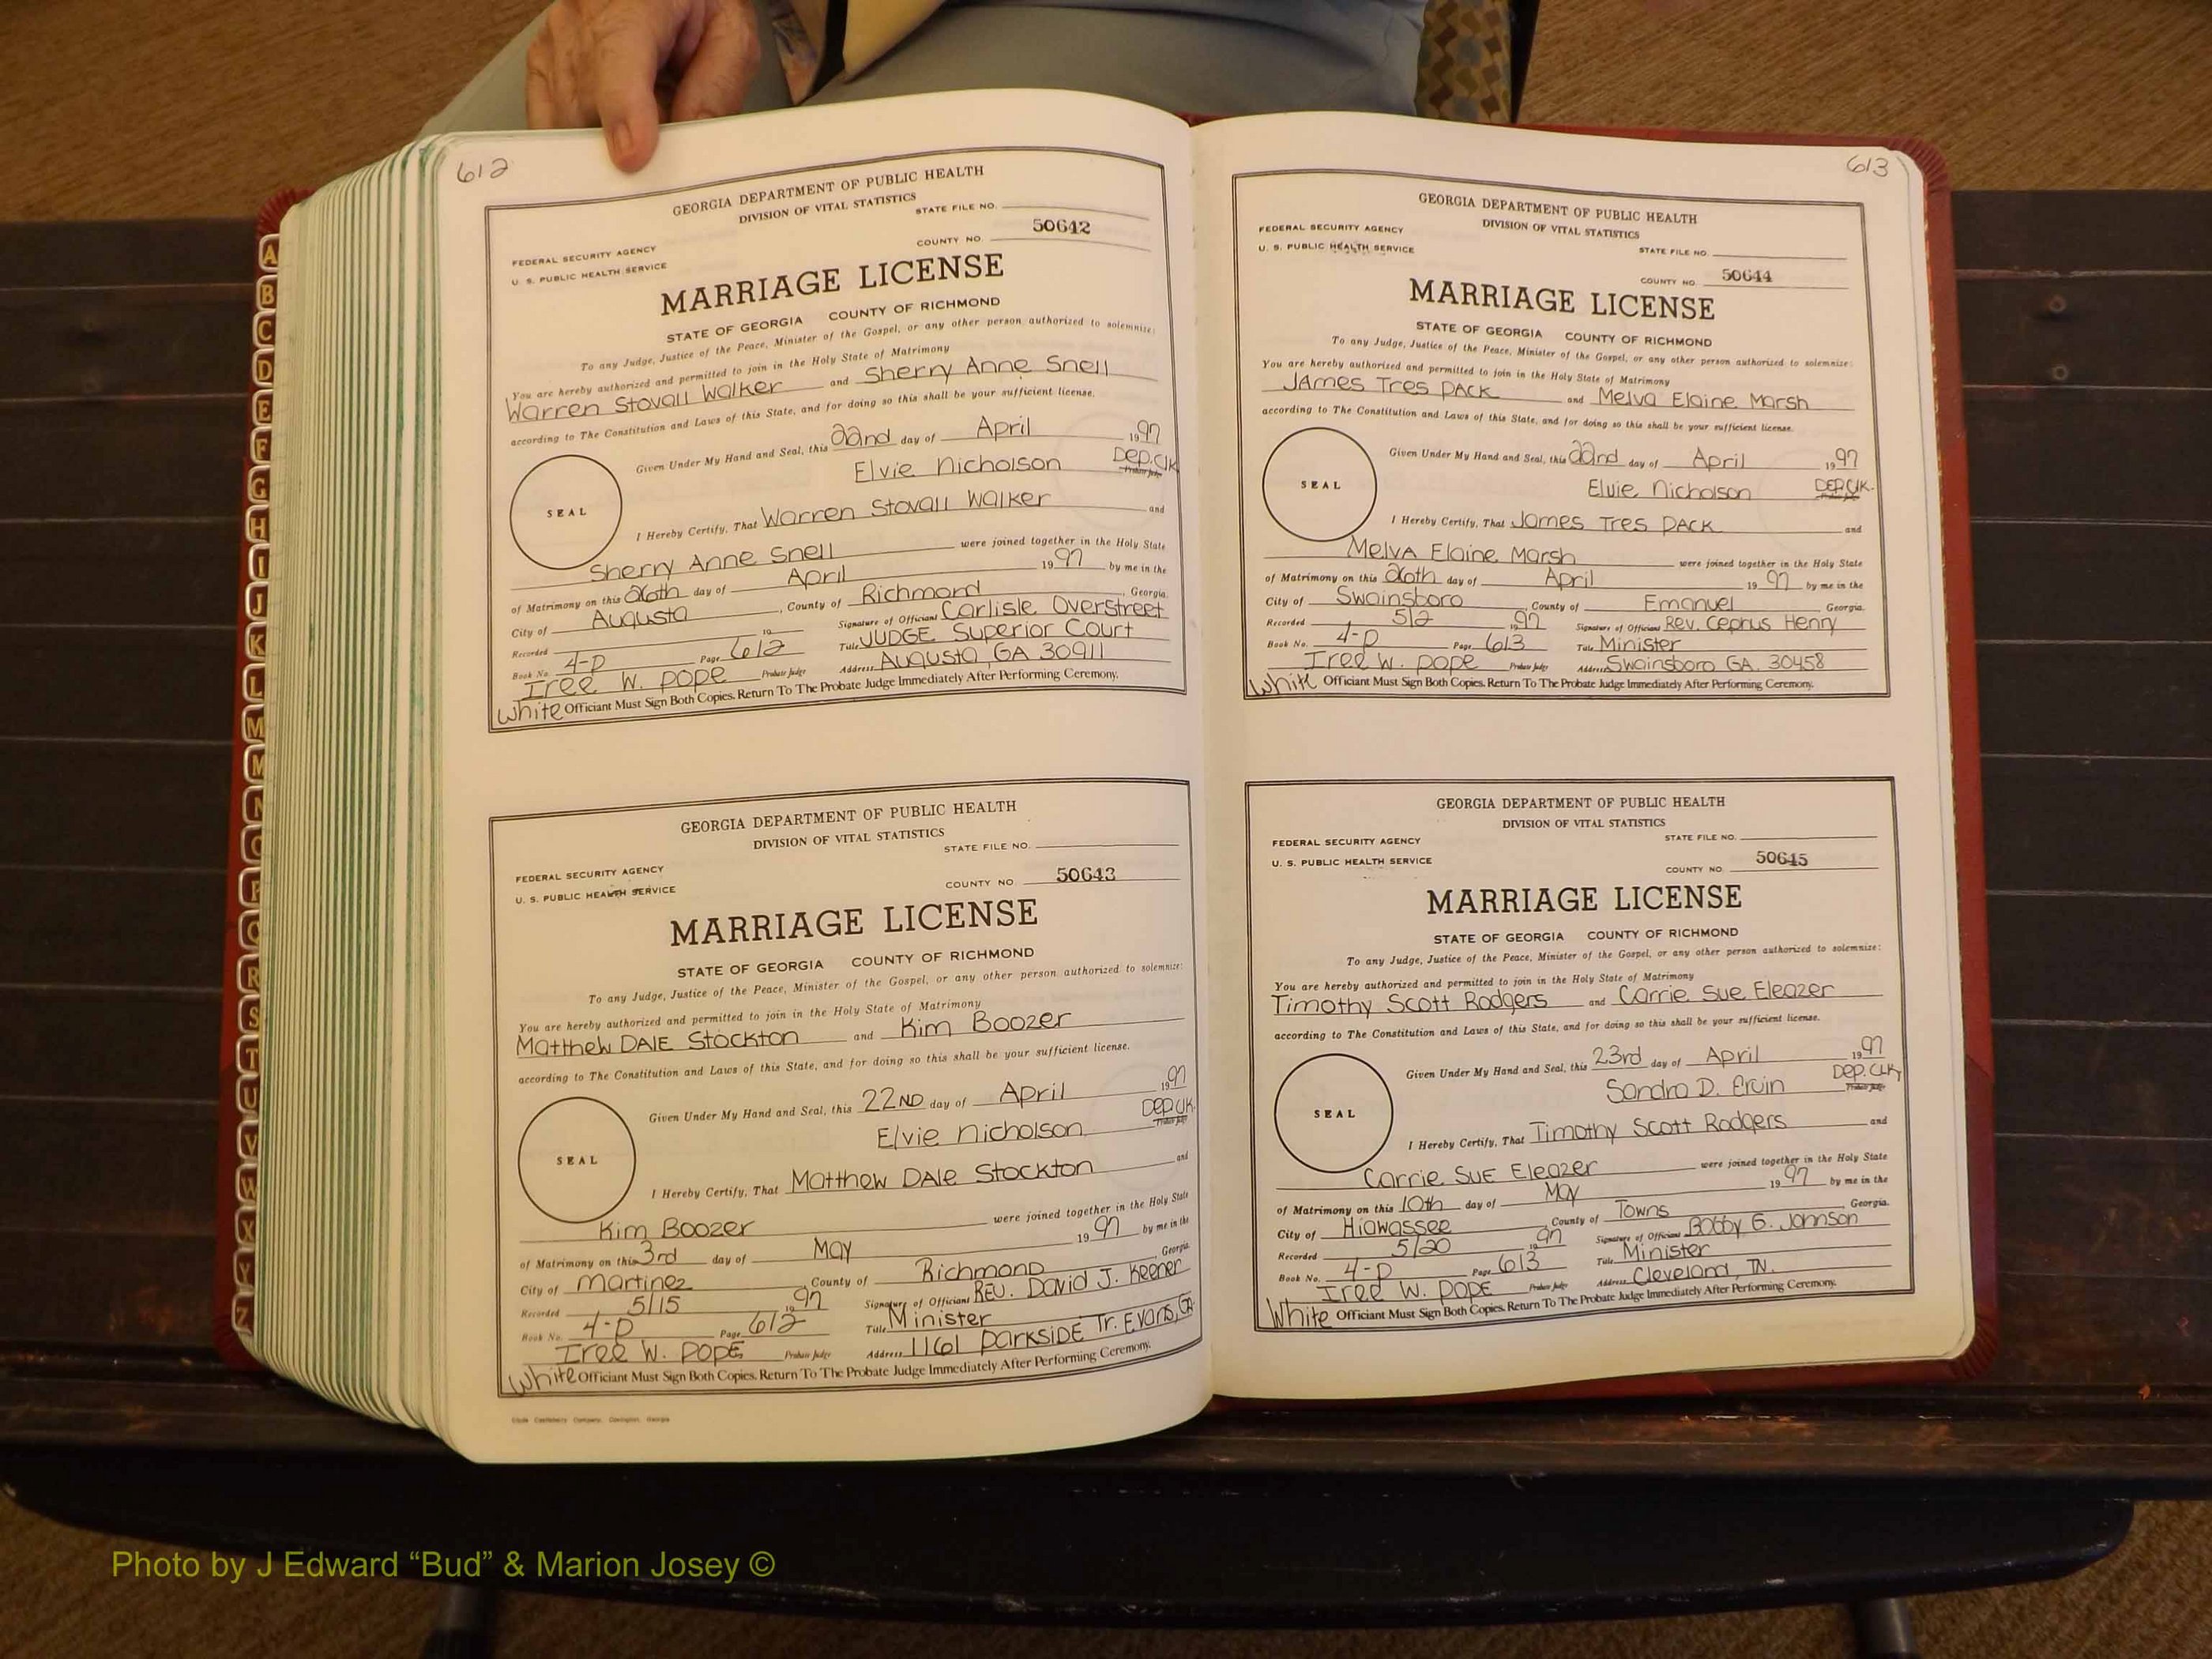 612
GEORGIA DEPARTMENT OF PUBLIC HEALTH
DIVISION OF VITAL STATISTICS
STATE FILE NO.
FEDERAL SECURITY AGENCY
COUNTY NO. 50642
U. S. PUBLIC HEALTH SERVICE
MARRIAGE LICENSE
STATE OF GEORGIA COUNTY OF RICHMOND
To any Judge, Justice of the Peace, Minister of the Gospel, or any other person authorized to solemnize:
You are hereby authorized and permitted to join in the Holy State of Matrimony
Warren Stovall Walker and Sherry Anne Snell
according to The Constitution and Laws of this State, and for doing so this shall be your sufficient license.
Given Under My Hand and Seal, this 22nd day of April 1997
Elvie Nicholson DEP.Clk
Probate Judge
SEAL
I Hereby Certify, That Warren Stovall Walker and
Sherry Anne Snell were joined together in the Holy State
of Matrimony on this 26th day of April 1997 by me in the
City of Augusta, County of Richmond, Georgia.
Recorded 19 Signature of Official Carlisle Overstreet
Book No. 4-P Page 612 Title JUDGE Superior Court
Iree W. Pope Probate Judge Address Augusta, GA 30911
White Officiant Must Sign Both Copies. Return To The Probate Judge Immediately After Performing Ceremony.
GEORGIA DEPARTMENT OF PUBLIC HEALTH
DIVISION OF VITAL STATISTICS
STATE FILE NO.
FEDERAL SECURITY AGENCY
COUNTY NO 50643
U. S. PUBLIC HEALTH SERVICE
MARRIAGE LICENSE
STATE OF GEORGIA COUNTY OF RICHMOND
To any Judge, Justice of the Peace, Minister of the Gospel, or any other person authorized to solemnize:
You are hereby authorized and permitted to join in the Holy State of Matrimony
Matthew DAlE Stockton and Kim Boozer
according to The Constitution and Laws of this State, and for doing so this shall be your sufficient license.
Given Under My Hand and Seal, this 22ND day of April 1997
Elvie Nicholson DEP.Clk.
Probate Judge
SEAL
I Hereby Certify, That Matthew DAle Stockton and
Kim Boozer were joined together in the Holy State
of Matrimony on this 3rd day of MAY 1997 by me in the
City of Martinez, County of Richmond, Georgia.
Recorded 5/15 1997 Signature of Official REV. David J. Keener
Book No. 4-P Page 612 Title Minister
Iree W. POPE Probate Judge Address 1161 PARKSIDE Tr. Evans, GA
White Officiant Must Sign Both Copies. Return To The Probate Judge Immediately After Performing Ceremony.
613
GEORGIA DEPARTMENT OF PUBLIC HEALTH
DIVISION OF VITAL STATISTICS
FEDERAL SECURITY AGENCY
STATE FILE NO.
U. S. PUBLIC HEALTH SERVICE
COUNTY NO. 50644
MARRIAGE LICENSE
STATE OF GEORGIA COUNTY OF RICHMOND
To any Judge, Justice of the Peace, Minister of the Gospel, or any other person authorized to solemnize:
You are hereby authorized and permitted to join in the Holy State of Matrimony
JAmes Tres PACK and Melva Elaine Marsh
according to the Constitution and Laws of this State, and for doing so this shall be your sufficient license.
Given Under My Hand and Seal, this 22nd day of April 1997
Elvie Nicholson DEP.Clk.
SEAL
I Hereby Certify, That James Tres PACK and
MelvA Elaine Marsh were joined together in the Holy State
of Matrimony on this 26th day of April 1997 by me in the
City of Swainsboro, County of Emanuel Georgia.
Recorded 5/2 1997 Signature of Official Rev. Cephus Henry
Book No. 4-P Page 613 Title Minister
Iree W. Pope Probate Judge Address Swainsboro GA. 30458
White Officiant Must Sign Both Copies. Return To The Probate Judge Immediately After Performing Ceremony.
GEORGIA DEPARTMENT OF PUBLIC HEALTH
DIVISION OF VITAL STATISTICS
FEDERAL SECURITY AGENCY
STATE FILE NO.
U. S. PUBLIC HEALTH SERVICE
COUNTY NO. 50645
MARRIAGE LICENSE
STATE OF GEORGIA COUNTY OF RICHMOND
To any Judge, Justice of the Peace, Minister of the Gospel, or any other person authorized to solemnize:
You are hereby authorized and permitted to join in the Holy State of Matrimony
Timothy Scott Rodgers and Carrie Sue Eleazer
according to The Constitution and Laws of this State, and for doing so this shall be your sufficient license.
Given Under My Hand and Seal, this 23rd day of April 1997
Sandra D. Ervin Dep. Clk
Probate Judge
SEAL
I Hereby Certify, That Timothy Scott Rodgers and
Carrie SuE Eleazer were joined together in the Holy State
of Matrimony on this 10th day of May 1997 by me in the
City of Hiawassee County of Towns Georgia.
Recorded 5/20 1997 Signature of Official Bobby G. Johnson
Book No. 4-P Page 613 Title Minister
Iree W. POPE Probate Judge Address Cleveland, TN.
White Officiant Must Sign Both Copies. Return To The Probate Judge Immediately After Performing Ceremony.
A
B
C
D
E
F
G
H
I
J
K
L
M
M
N
O
P
Q
R
S
T
U
V
W
X
Y
Z
Photo by J Edward “Bud” & Marion Josey ©